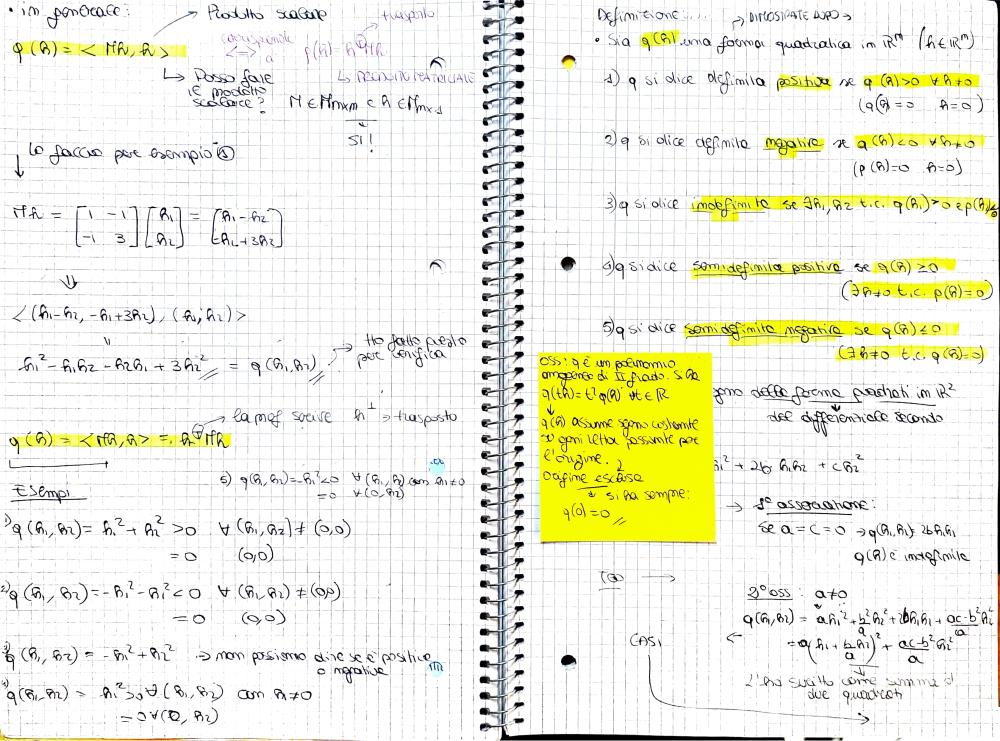 • in generale:
→ Prodotto scalare
→ trasposto
q(h) = < Mh, h >
corrisponde a
p(h) = hᵀMh
↳ Posso fare il prodotto scalare?
↳ PRODOTTO MATRICIALE
M ∈ Mmxm e h ∈ Mmx1
SI!
Lo faccio per esempio ①
Mh = [1 -1; -1 3] [h1; h2] = [h1-h2; -h1+3h2]
⇓
< (h1-h2, -h1+3h2), (h1, h2) >
h1² - h1h2 - h2h1 + 3h2² = q(h1,h2)
→ Ho fatto questo per verifica
→ la prof scrive h⊥ → trasposto
q(h) = <Mh, h> = hᵀMh
Esempi
5) q(h1,h2) = -h1² <0 ∀(h1,h2) con h1≠0
=0 ∀(0,h2)
1) q(h1,h2) = h1² + h2² >0 ∀ (h1,h2) ≠ (0,0)
= 0 (0,0)
2) q(h1,h2) = -h1² - h1² <0 ∀ (h1,h2) ≠ (0,0)
= 0 (0,0)
3) q(h1,h2) = -h1² + h2² → non possiamo dire se è positiva o negativa
4) q(h1,h2) = h1² >0 ∀ (h1,h2) con h1≠0
= 0 ∀(0,h2)
Definizione:
→ DIMOSTRATE DOPO →
• Sia q(h) una forma quadratica in ℝᵐ (h∈ℝᵐ)
1) q si dice definita positiva se q(h)>0 ∀h≠0
(q(h)=0 h=0)
2) q si dice definita negativa se q(h)<0 ∀h≠0
(p(h)=0 h=0)
3) q si dice indefinita se ∃h1,h2 t.c. q(h1)>0 e p(h2)<0
4) q si dice semidefinita positiva se q(h) ≥0
(∃h≠0 t.c. p(h)=0)
5) q si dice semidefinita negativa se q(h) ≤0
(∃h≠0 t.c. q(h)=0)
OSS: q è un polinomio
omogeneo di II grado. Si ha
q(th) = t²q(h) ∀t∈ℝ
q(h) assume segno costante
su ogni retta passante per
l'origine.
Origine esclusa
si ha sempre:
q(0)=0
segno delle forme quadrati in ℝ²
del differenziale secondo
h1² + 2b h1h2 + ch2²
→ 1° osservazione:
se a=c=0 → q(h1,h2)= 2bh1h1
q(h) è indefinita
2° oss: a≠0
q(h1,h2) = ah1² + b²/a h2² + 2bh1h1 + (ac-b²)/a h2²
= a(h1 + b/a h1)² + (ac-b²)/a h2²
CASI
L'ho scritto come somma di
due quadrati